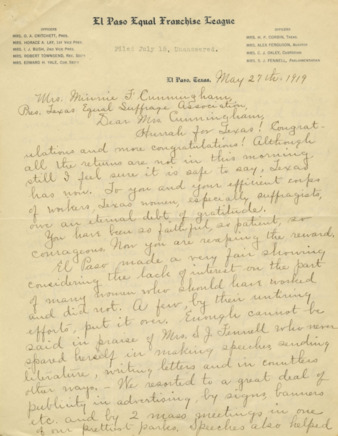 El Paso Equal Franchise League
OFFICERS
MRS. HORACE B. LEE, 1st Vice Pres.
MRS. ROBERT TOWNSEND, Rec. Sec'y
OFFICERS
Filed July 15, Unanswered.
El Paso, Texas, May 27th 1919
Mrs. Minnie F. Cunningham,
Pres. Texas Equal Suffrage Association,
Dear Mrs Cunningham,
Hurrah for Texas! Congrat-
ulations and more congratulations! Although
all the returns are not in this morning
still I feel sure it is safe to say, Texas
has won. To you and your efficient corps
of workers, Texas women, especially, suffragists,
owe an eternal debt of gratitude.
You have been so faithful, so patient, so
courageous. Now you are reaping the reward.
El Paso, made a very fair showing
considering the lack of interest on the part
of many women who should have worked
and did not. A few, by their untiring
efforts, put it over. Enough cannot be
said in praise of Mrs. S. J. Fennell who never
spared herself in making speeches, sending
literature, writing letters and in countless
other ways. - We resorted to a great deal of
publicity in advertising, by signs, banners
etc. and by 2 mass meetings in one
of our prettiest parks. Speeches also helped